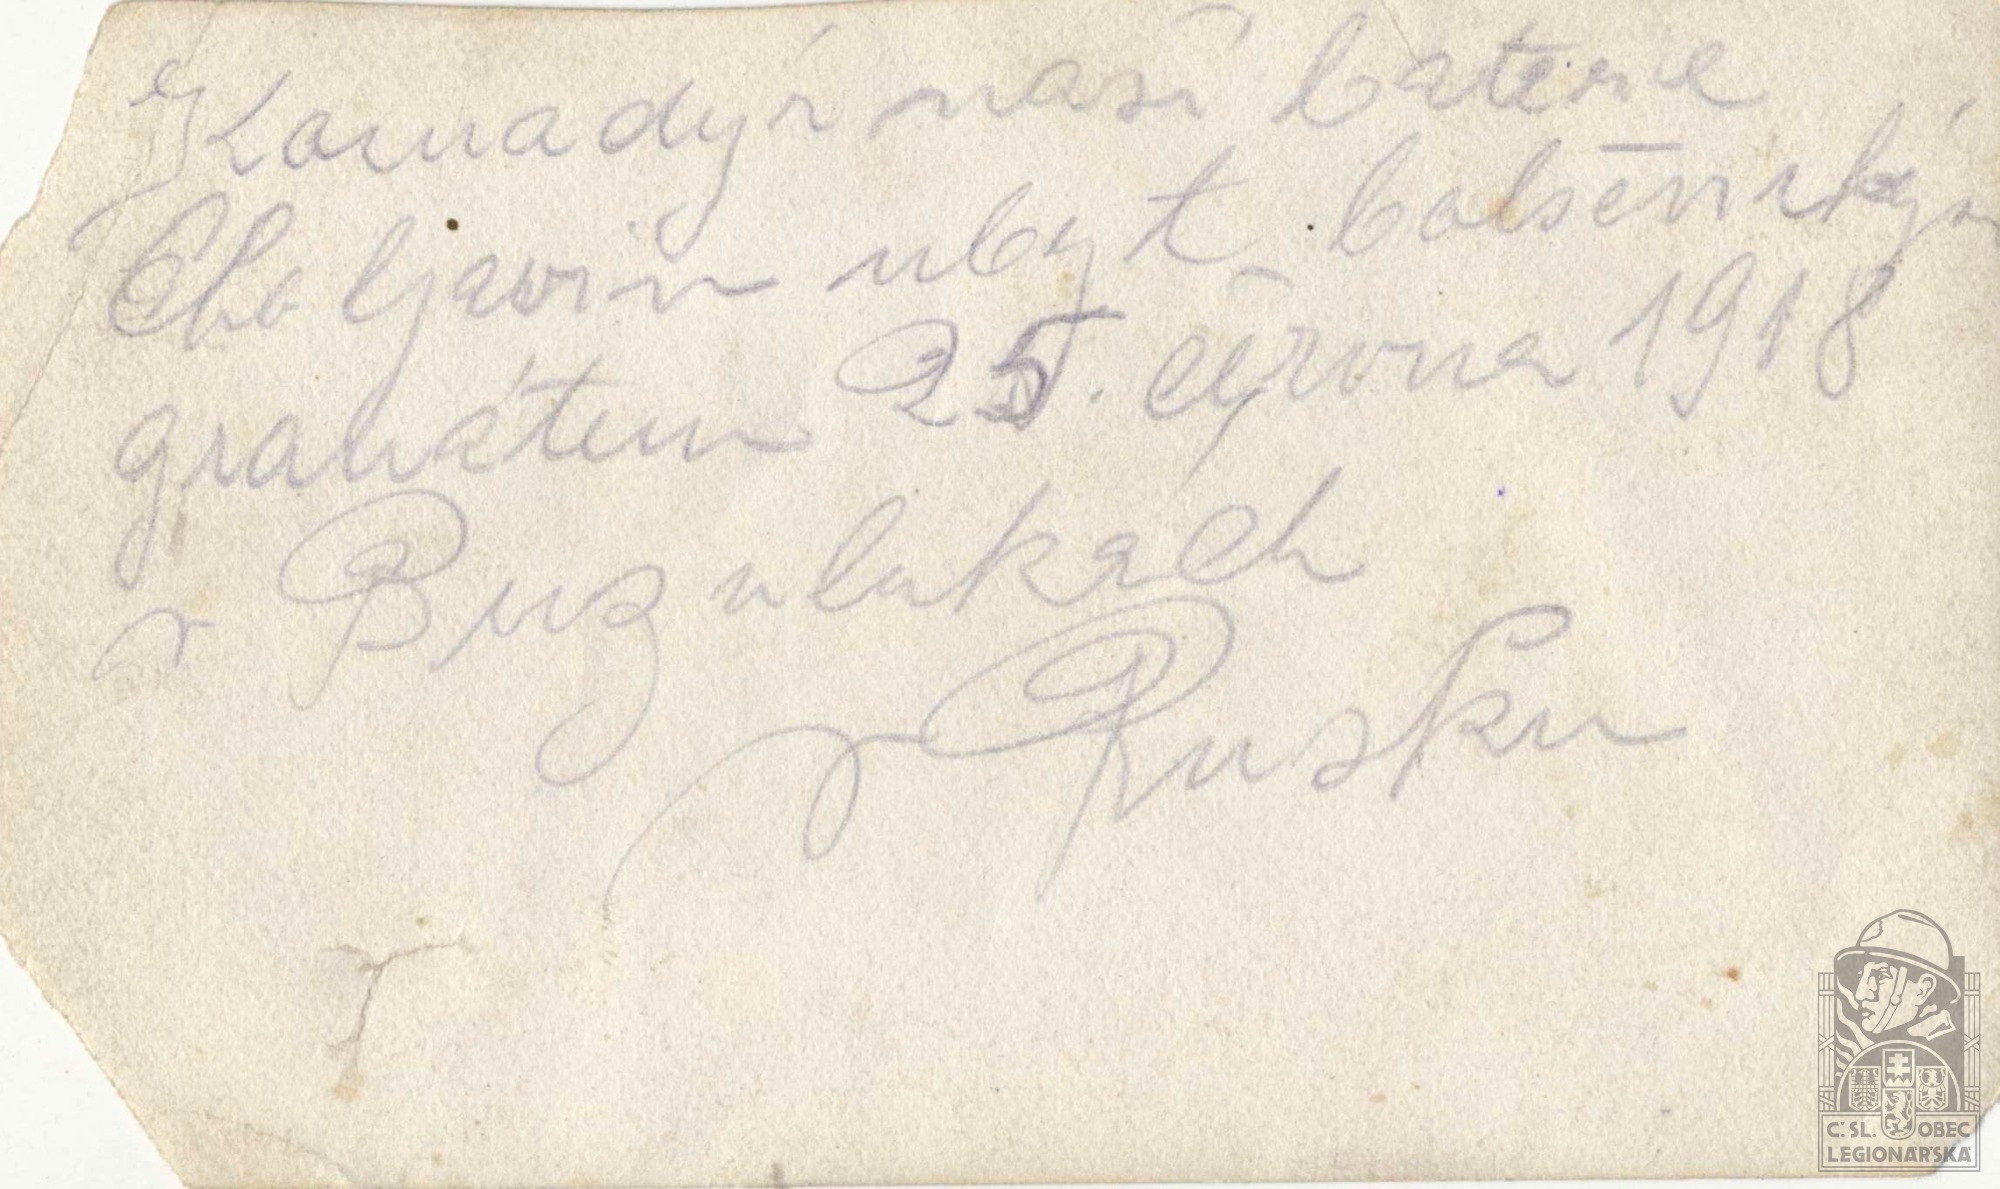 Komadýr naší baterie
Choljavin ubyt bolševickým
granátem 25. června 1918
v Buzulukách
v Rusku
Č. SL. OBEC
LEGIONÁŘSKÁ